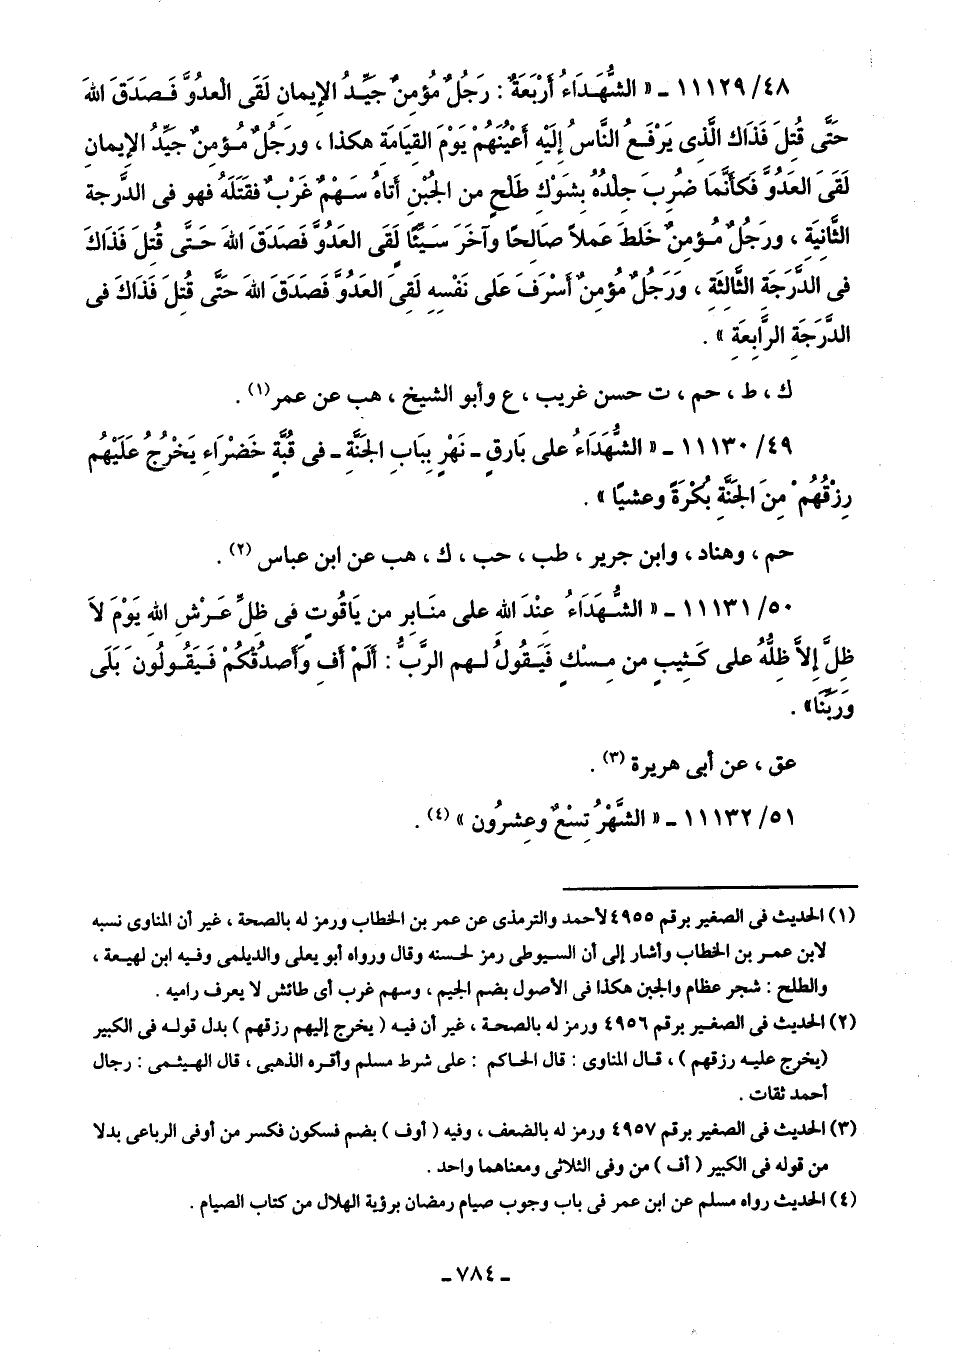 ٤٨/ ١١١٢٩ ـ « الشُّهَدَاءُ أَرْبَعَةٌ : رَجُلٌ مُؤمِنٌ جَيِّدُ الإِيمانِ لَقَى الْعدُوَّ فَصَدَقَ اللهَ
حَتَّى قُتِلَ فَذَاكَ الَّذِى يَرْفَعُ النَّاسُ إِلَيْهِ أَعْيُنَهُمْ يَوْمَ القِيامَةِ هكذا ، ورَجُلٌ مُؤمِنٌ جَيِّدُ الإِيمانِ
لَقَىَ العَدُوَّ فَكَأَنَّمَا ضُرِبَ جِلْدُهُ بِشَوْكِ طَلْحٍ من الجُبْنِ أتَاهُ سَهْمٌ غَرْبٌ فقَتَلَهُ فهو فى الدَّرجةِ
الثَّانِيَةِ ، ورَجُلٌ مُؤمِنٌ خَلطَ عَملاً صَالحًا وآخَرَ سَيِّئًا لَقِى العَدُوَّ فَصَدَقَ اللهَ حَتَّى قُتِلَ فَذَاكَ
فى الدَّرَجَةِ الثَّالِثَةِ ، وَرَجُلٌ مُؤمِنٌ أَسْرَفَ عَلَى نَفْسِهِ لَقِىَ العَدُوَّ فَصَدَقَ اللهَ حَتَّى قُتِلَ فَذَاكَ فى
الدَّرَجَةِ الرَّابِعَةِ » .
ك ، ط ، حم ، ت حسن غريب ، ع وأبو الشيخ ، هب عن عمر (١) .
٤٩/ ١١١٣٠ ـ « الشُّهَدَاءُ على بَارِقٍ ـ نَهْرٍ بِبَابِ الجَنَّةِ ـ فى قُبَّةٍ خَضْرَاءِ يَخْرُجُ عَلَيْهُم
رِزْقُهُمْ مِنَ الجَنَّةِ بُكْرَةً وعشيًا » .
حم ، وهناد ، وابن جرير ، طب ، حب ، ك ، هب عن ابن عباس (٢) .
٥٠/ ١١١٣١ ـ « الشُّهَدَاءُ عنْدَ الله على منَابِر من يَاقُوتٍ فى ظِلِّ عَرْشِ اللهِ يَوْمَ لاَ
ظِلَّ إِلاَّ ظِلُّهُ على كَثِيبٍ من مِسْكٍ فَيَقُولُ لهم الرَّبُّ : أَلَمْ أَفِ وَأَصدُقْكُمْ فَيَقُولُونَ بَلَى
وَرَبِّنَا» .
عق ، عن أبى هريرة (٣) .
٥١/ ١١١٣٢ ـ « الشَّهْرُ تِسْعٌ وعِشرُون » (٤) .
(١) الحديث فى الصغير برقم ٤٩٥٥ لأحمد والترمذى عن عمر بن الخطاب ورمز له بالصحة ، غير أن المناوى نسبه
لابن عمر بن الخطاب وأشار إلى أن السيوطى رمز لحسنه وقال ورواه أبو يعلى والديلمى وفيه ابن لهيعة ،
والطلح : شجر عظام والجبن هكذا فى الأصول بضم الجيم ، وسهم غرب أى طائش لا يعرف راميه .
(٢) الحديث فى الصغير برقم ٤٩٥٦ ورمز له بالصحة ، غير أن فيه ( يخرج إليهم رزقهم ) بدل قوله فى الكبير
(يخرج عليه رزقهم ) ، قال المناوى : قال الحاكم : على شرط مسلم وأقره الذهبى ، قال الهيثمى : رجال
أحمد ثقات .
(٣) الحديث فى الصغير برقم ٤٩٥٧ ورمز له بالضعف ، وفيه ( أوف ) بضم فسكون فكسر من أوفى الرباعى بدلا
من قوله فى الكبير ( أف ) من وفى الثلاثى ومعناهما واحد .
(٤) الحديث رواه مسلم عن ابن عمر فى باب وجوب صيام رمضان برؤية الهلال من كتاب الصيام .
ـ ٧٨٤ ـ